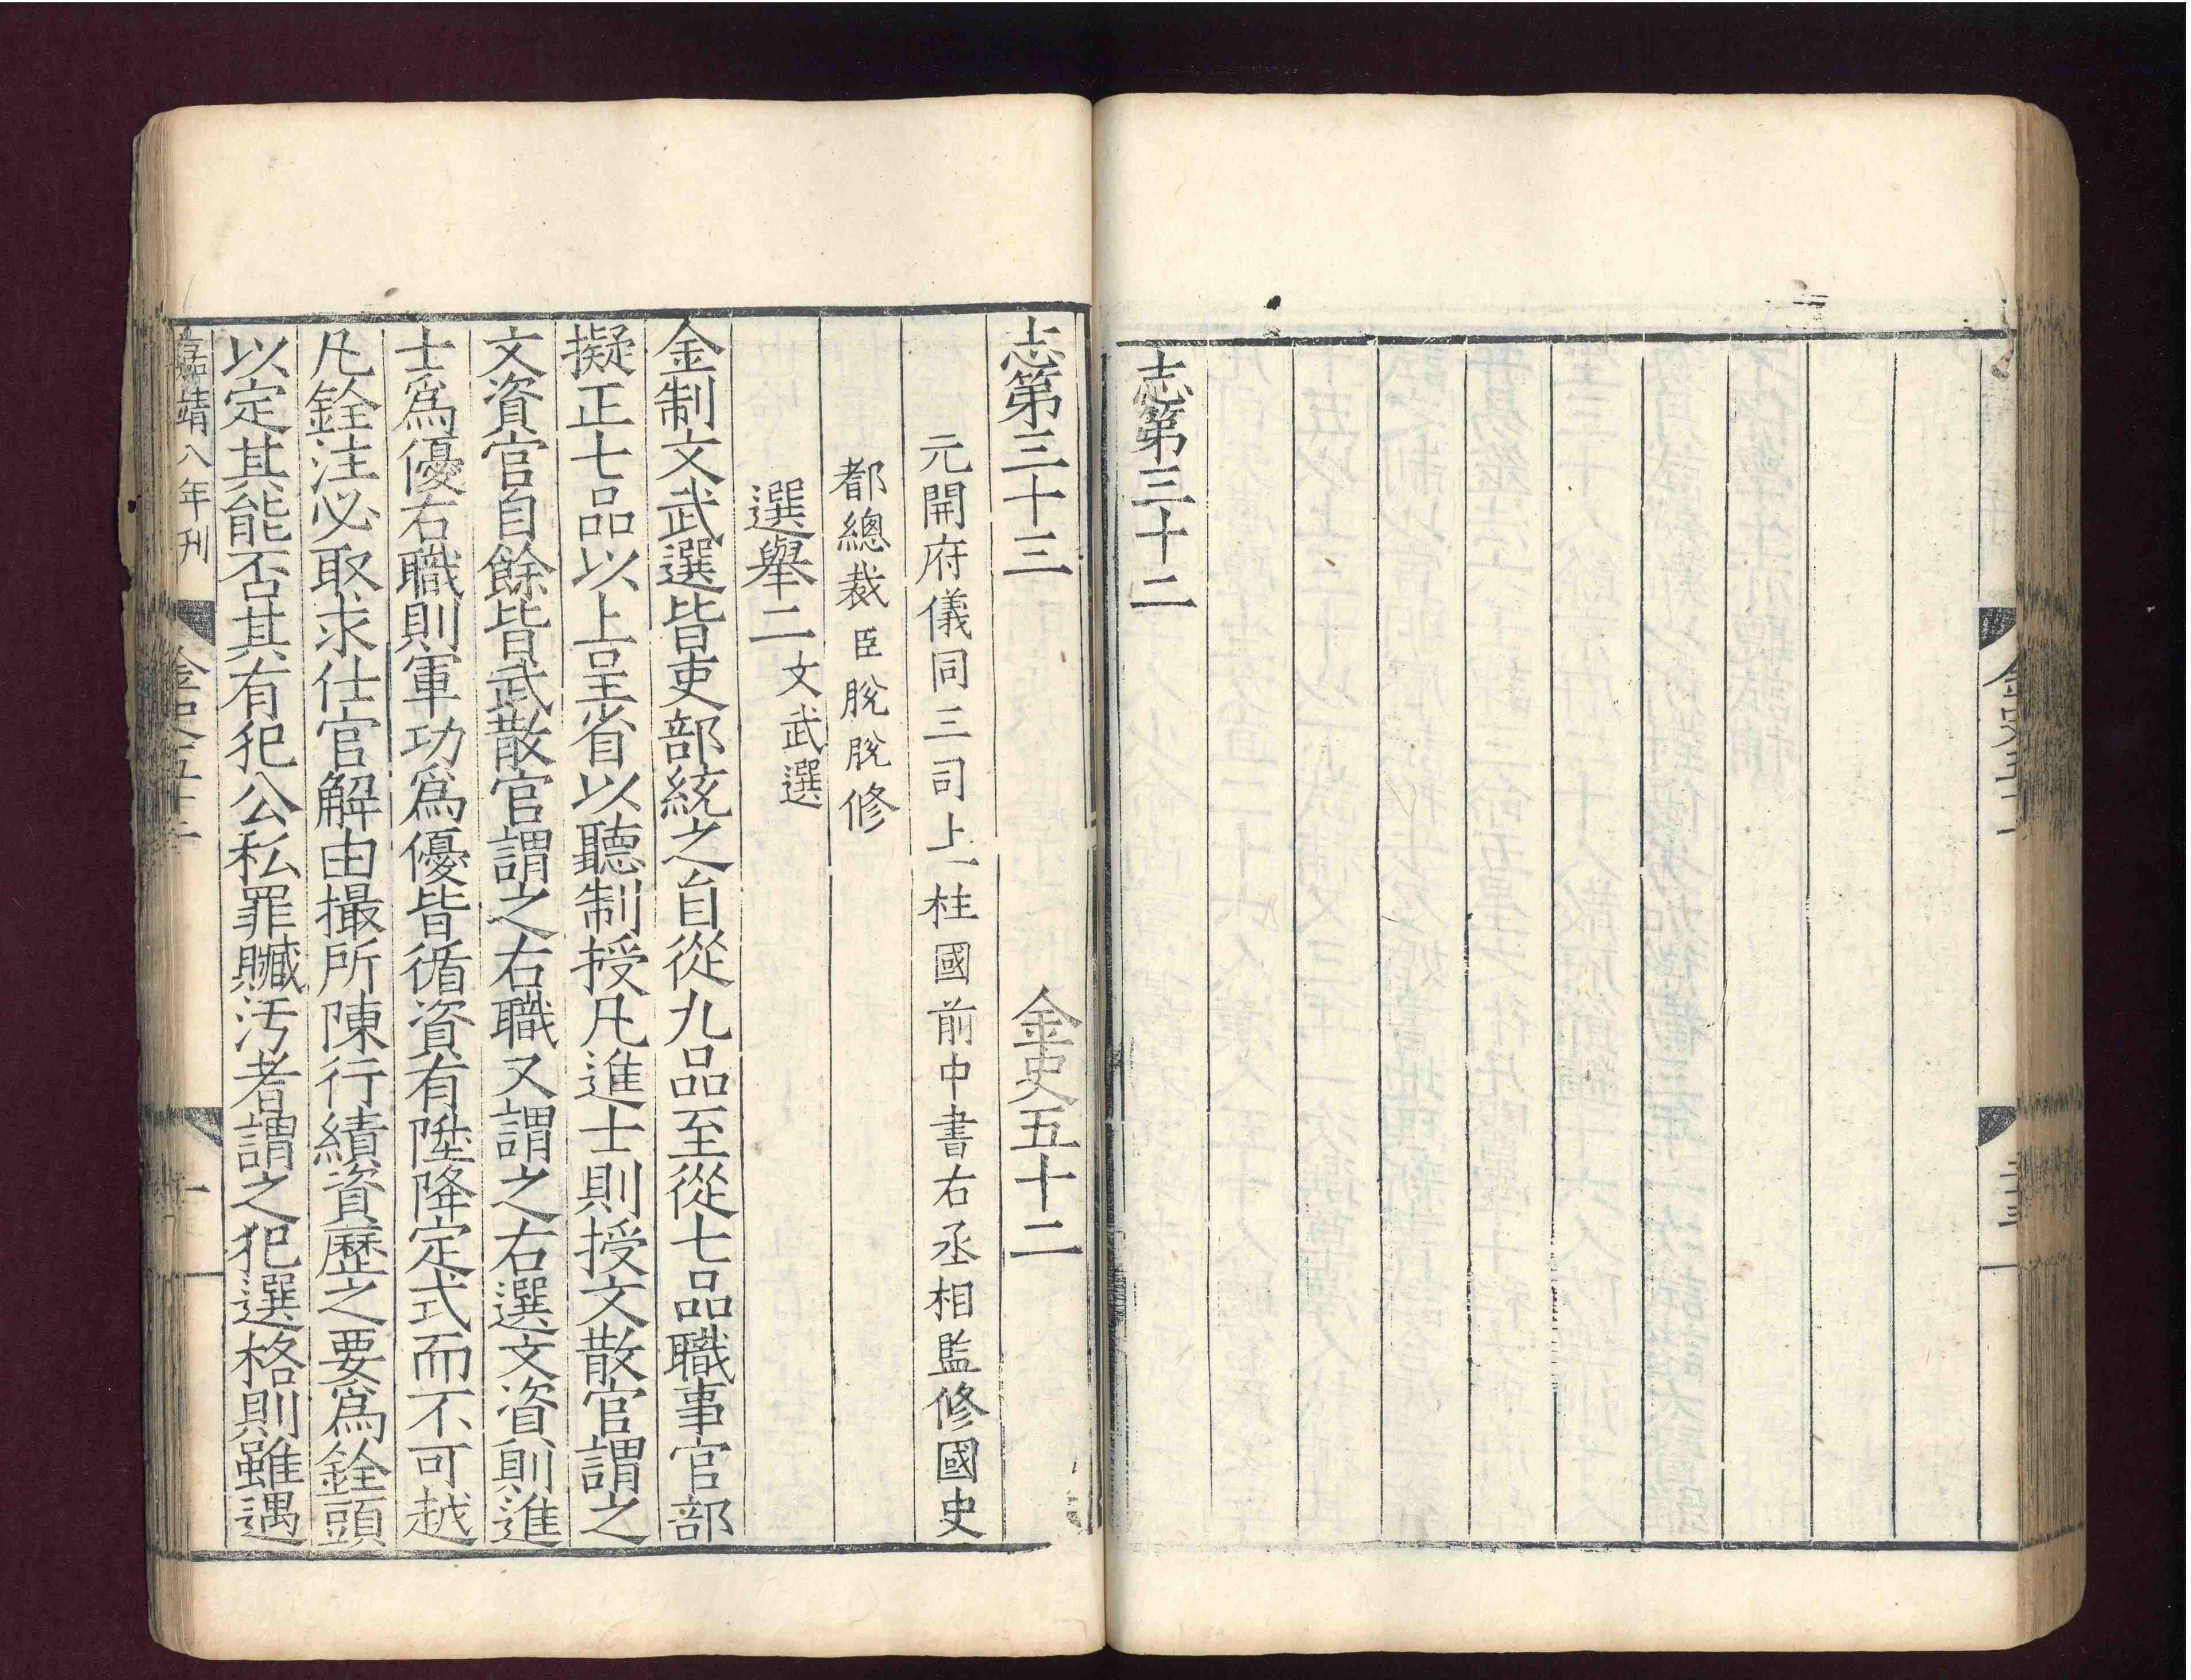 金史五十一
三十三
志第三十二
志第三十三　金史五十二
元開府儀同三司上柱國前中書右丞相監修國史
都總裁臣脫脫修
選舉二文武選
金制文武選皆吏部統之自從九品至從七品職事官部
擬正七品以上呈省以聽制授凡進士則授文散官謂之
文資官自餘皆武散官謂之右職又謂之右選文資則進
士爲優右職則軍功爲優皆循資有陞降定式而不可越
凡銓注必取求仕官解由撮所陳行績資歷之要爲銓頭
以定其能否其有犯公私罪贓汚者謂之犯選格則雖遇
嘉靖八年刊
金史五十二
一